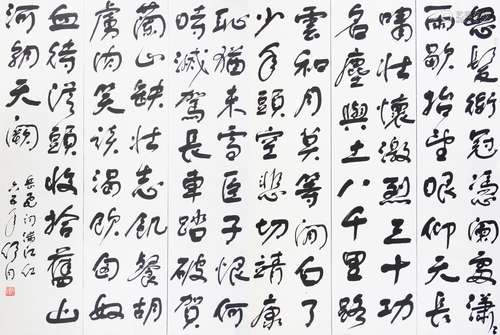 怒髮衝冠憑闌處瀟
雨歇抬望眼仰天長
嘯壯懷激烈三十功
名塵與土八千里路
雲和月莫等閒白了
少年頭空悲切靖康
恥猶未雪臣子恨何
時滅駕長車踏破賀
蘭山缺壯志飢餐胡
虜肉笑談渴飲匈奴
血待從頭收拾舊山
河朝天闕
岳飛词滿江红
六五年舒同